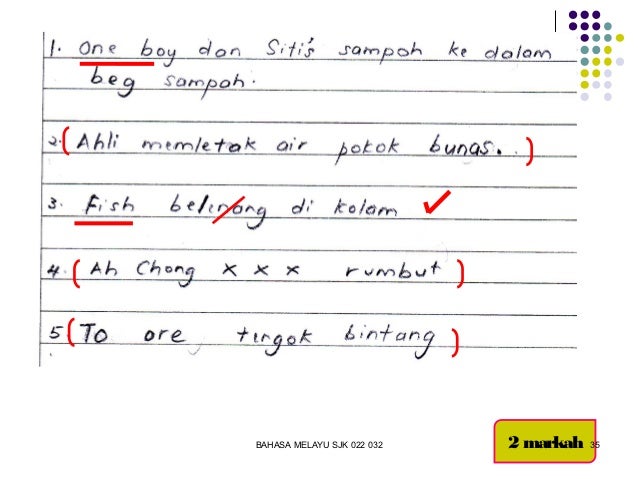 1. One boy dan Siti's sampah ke dalam
beg sampah.
2. (Ahli memletak air pokok bunas.)
3. Fish belinang di kolam ✓
4. (Ah Chong x x x rumbut)
5. (To ore tingok bintang)
BAHASA MELAYU SJK 022 032
2 markah 35